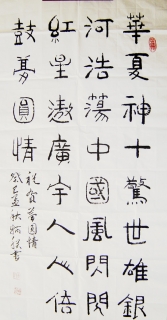 華夏神十驚世雄銀
河浩蕩中國風閃閃
紅星遨廣宇人人倍
鼓夢圓情
圓情
癸巳孟秋書